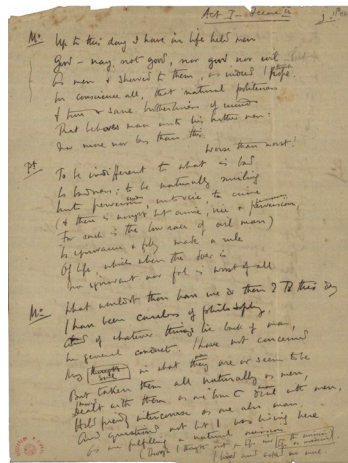 Act I — Scene
Mc Up to this day I have in life held men
Good — nay, not good, nor good nor evil
as men & showed to them, as indeed I hope
in conscience all, that natural politeness
& firm & sane brotherliness of
That behoves man unto his brother man:
Nor more nor less than this.
Pt. Worse than worst!
To be indifferent to what is bad
Is badness; to be naturally smiling
unto perversion, unto vice, to crime
(& there is nought but crime, vice & perversion,
For such is the low race of evil man)
Is ignorance & folly made a rule
Of life, which when the doer is
Nor ignorant nor fool is worst of all
Mc What wouldst thou have me do then? To this day
I have been careless of philosophy,
And of whatever things lie back of man,
in general conduct. I have not concerned
My in what they are or seem to be
But taken them all naturally as men,
Dealt with them as one born to deal with men,
Held friend intercourse as one also man,
And questioned not but I was living here
As one fulfilling a natural mission
(
I lived and asked no more